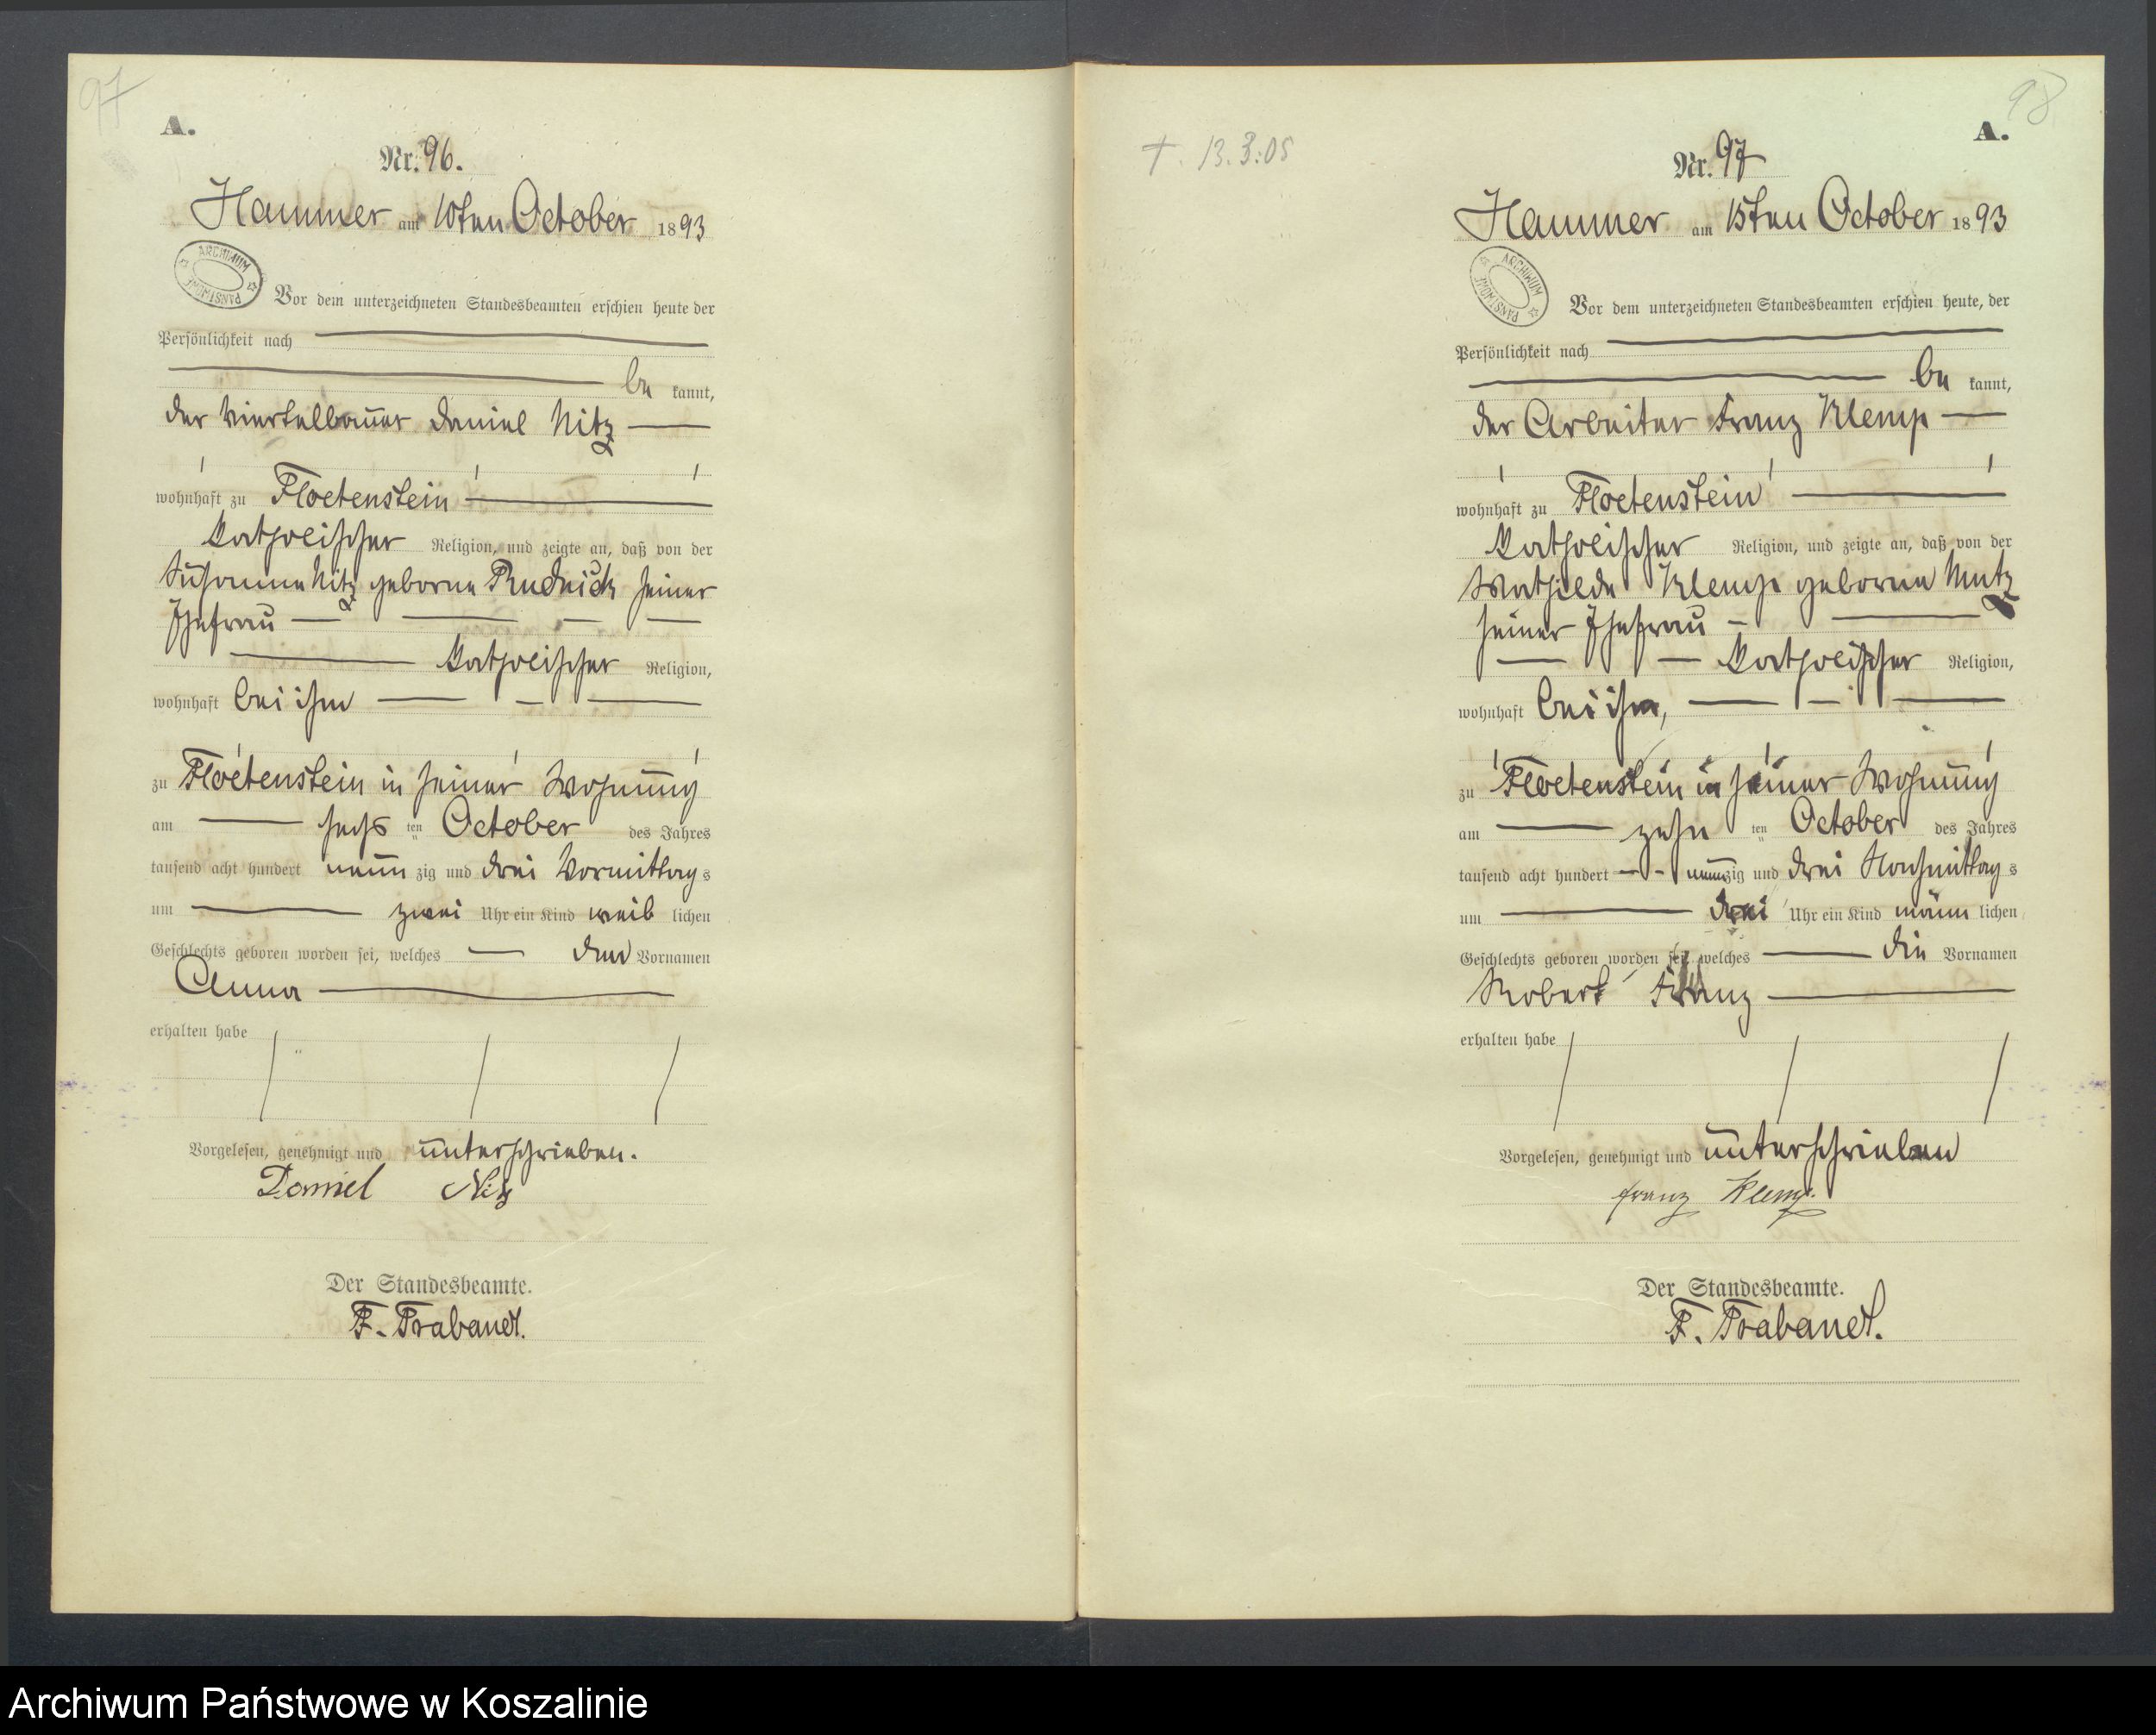 97
A.
Nr. 96.
Hammer am 10ten October 1893
ARCHIWUM PAŃSTWOWE
Vor dem unterzeichneten Standesbeamten erschien heute der
Persönlichkeit nach
be kannt,
der Viertelbauer Daniel Nitz
wohnhaft zu Floetenstein
katholischer Religion, und zeigte an, daß von der
Susanna Nitz geborne Rudnick seiner
Ehefrau
katholischer Religion,
wohnhaft bei ihm
zu Floetenstein in seiner Wohnung
am sechs ten October des Jahres
tausend acht hundert neun zig und drei Vormittag s
um zwei Uhr ein Kind weib lichen
Geschlechts geboren worden sei, welches den Vornamen
Anna
erhalten habe
Vorgelesen, genehmigt und unterschrieben.
Daniel Nitz
Der Standesbeamte.
F. Trabandt.
98
A.
†. 13.3.05
Nr. 97
Hammer am 15ten October 1893
ARCHIWUM PAŃSTWOWE
Vor dem unterzeichneten Standesbeamten erschien heute, der
Persönlichkeit nach
be kannt,
der Arbeiter Franz Klemp
wohnhaft zu Floetenstein
katholischer Religion, und zeigte an, daß von der
Mathilde Klemp geborne Mutz
seiner Ehefrau
katholischer Religion,
wohnhaft bei ihm,
zu Floetenstein in seiner Wohnung
am zehn ten October des Jahres
tausend acht hundert neunzig und drei Nachmittag s
um drei Uhr ein Kind männ lichen
Geschlechts geboren worden sei, welches die Vornamen
Robert Franz
erhalten habe
Vorgelesen, genehmigt und unterschrieben
Franz Klemp.
Der Standesbeamte.
F. Trabandt.
Archiwum Państwowe w Koszalinie